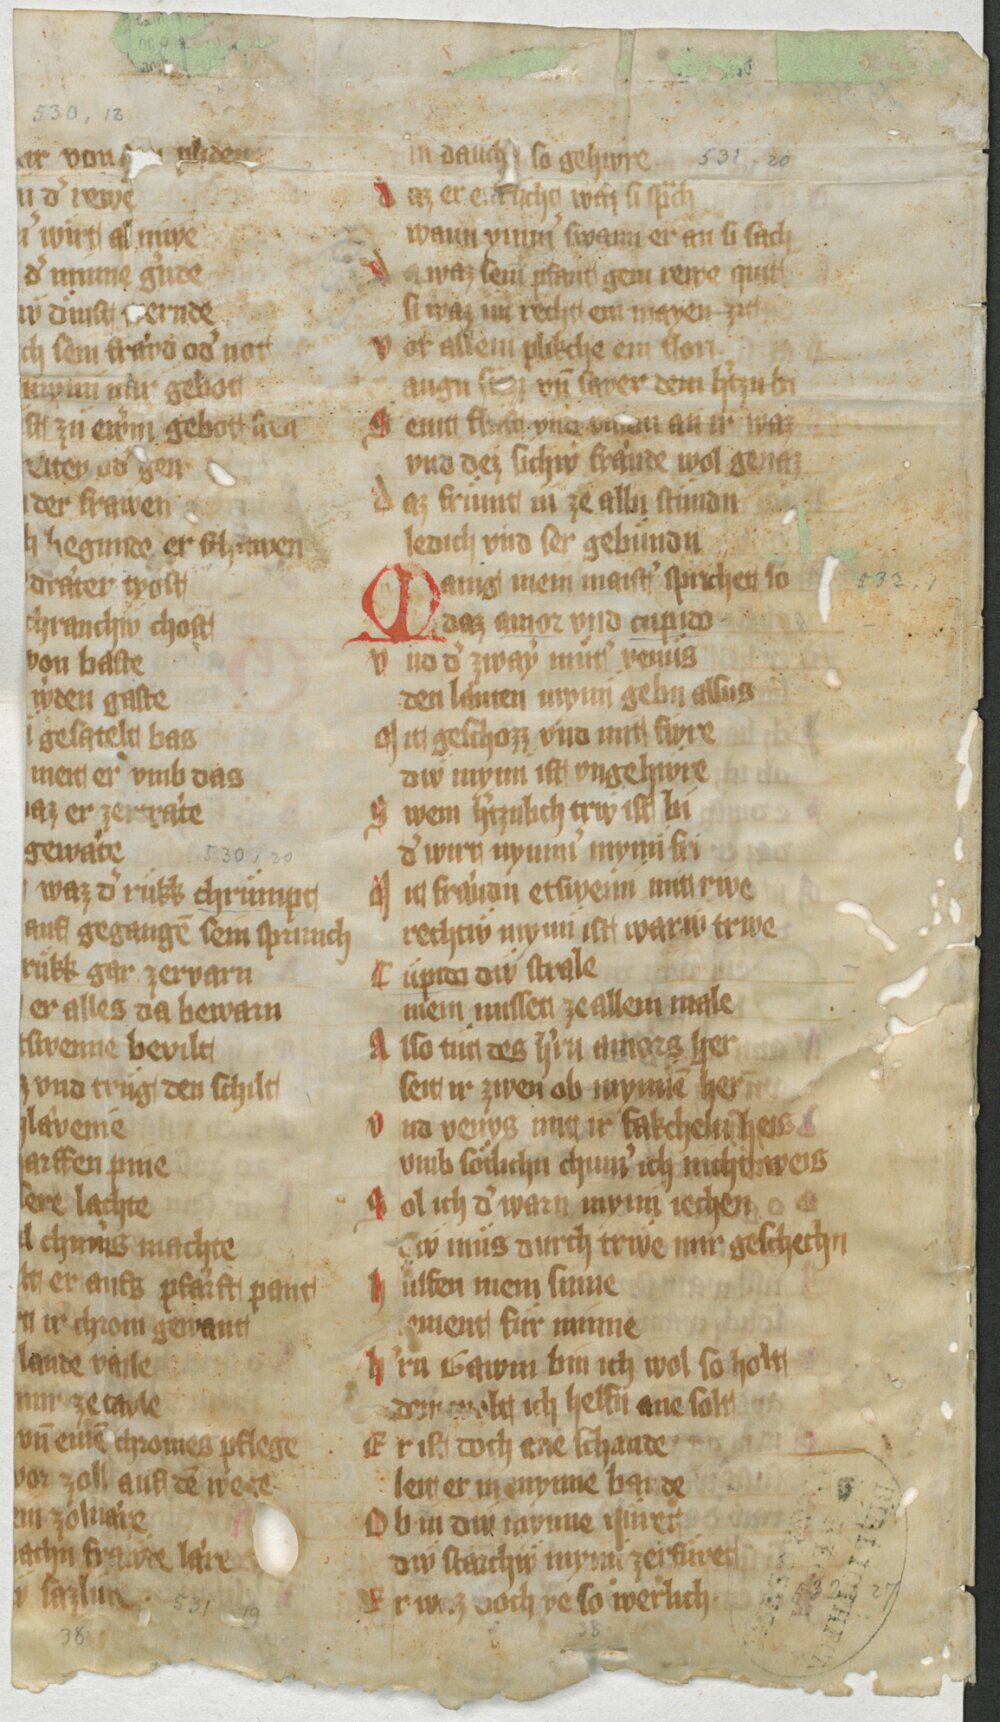 530, 12
ar von
n d' rewe
wirt al niwe
d' minne gernde
ch sein fraud od' not
mynn mir gebot
st zu ewrm gebot
reiten od' gen
der frawen
h begunde er schawen
drater tyost
chranchiw chost
von baste
werden gaste
gesatelt bas
meit er vmb das
az er zertrate
gewate
530, 30
waz d' rukk chrumpt
auf gegangen sein sprunch
rukk gar zervarn
er alles da bewarn
tswenne bevilt
z vnd trug den schilt
glavenie
arffen pine
sere lachte
l chumers machte
lt er aufs pfarft pant
n ir chrom gewant
lande vaile
mir ze taile
vn einē chromes pflege
vor zoll auf dē wege
em zolnare
achn frawde lare
531, 19
38
in dauch so gehiwre 531, 20
Daz er waz si sprach
wann ymm' swann er an si sach
waz sein pfant gein rewe quit
si waz im recht ein mayen zit
Vor allem plikche ein flori
augn vn saver dem h'tzn bi
Seint flust vnd vinden an ir waz
vnd dez sichiw fraude wol genaz
Daz frumt in ze alln stundn
ledich vnd ser gebundn
Manig mein maist' sprichet so 532, 1
daz amor vnd cupido
Vnd d' zwaÿ mut' venus
den lawten mynn gebn alsus
Mit geschozz vnd mit fiwre
diw mynn ist vngehiwre
Swem h'tznlich triw ist bi
d' wirt nymm' mynn fri
Mit fraudn etswenn mit riwe
rechtiw mynn ist wariw triwe
Cupido diw strale
mein misset ze allem male
Also tut des h'rn amors ger
seit ir zwen ob mynnē her
Vnd venus mit ir fakcheln heis
vmb solichn chum' ich nicht weis
Sol ich d' warn mynn iechen
diw mus durch triwe mir geschechn
Hulfen mein sinne
iement fur minne
H'rn Gawin bin ich wol so holt
dem wolt ich helfn ane solt
Er ist doch ane schande
leit er in mynne bande
Ob in diw mynne ruret
diw starchiw mynn zerfuret
Er waz doch ye so werlich
532 27
38